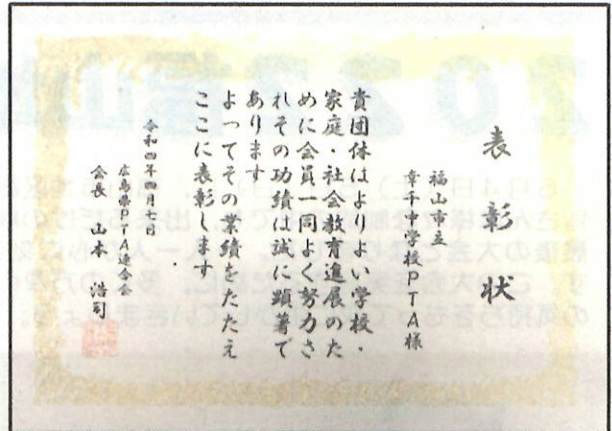 表彰状
福山市立
幸千中学校PTA様
貴団体はよりよい学校・
家庭・社会教育進展のた
めに会員一同よく努力さ
れその功績は試に顕著で
あります
よってその業績をたたえ
ここに表彰します
令和四年四月 日
広島県 連合会
会長 山本 浩司